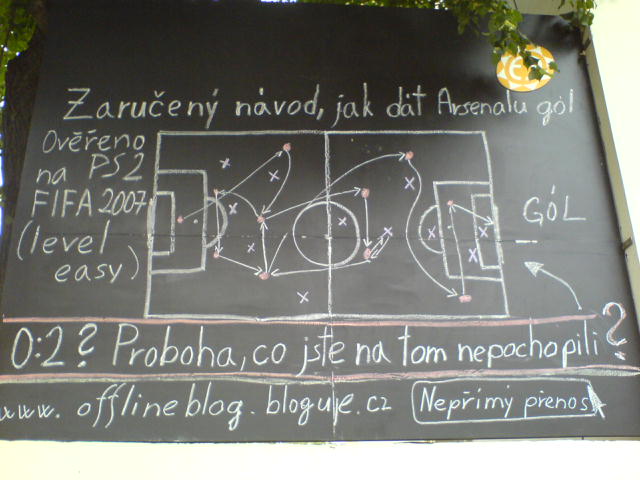 Zaručený návod, jak dát Arsenalu gól
Ověřeno
na PS2
FIFA 2007
(level
easy)
GÓL
0:2? Proboha, co jste na tom nepochopili?
www.offlineblog.bloguje.cz
Nepřímý přenos